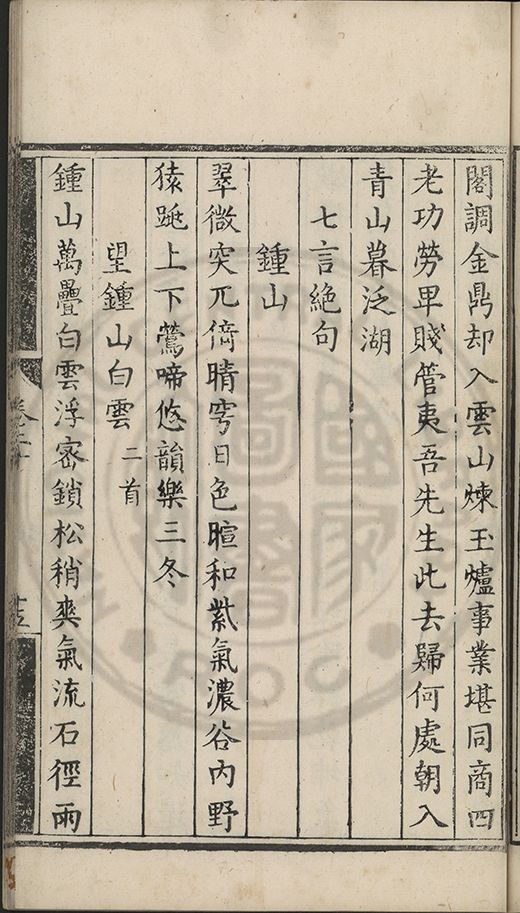 閣調金鼎却入雲山煉玉爐事業堪同商四
老功勞早賤管夷吾先生此去歸何處朝入
青山暮泛湖
七言絕句
鍾山
翠微突兀倚晴穹日色暄和紫氣濃谷內野
猿跳上下鶯啼悠韻樂三冬
望鍾山白雲二首
鍾山萬疊白雲浮密鎖松稍爽氣流石徑兩
卷二十